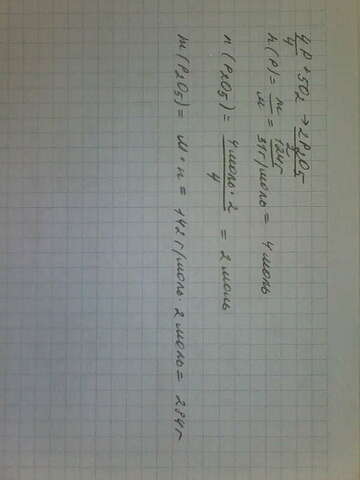 4P + 5O2 → 2P2O5
4 2
n(P) = m/M = 124г/31г/моль = 4 моль
n(P2O5) = 4 моль · 2/4 = 2 моль
m(P2O5) = M · n = 142 г/моль · 2 моль = 284г